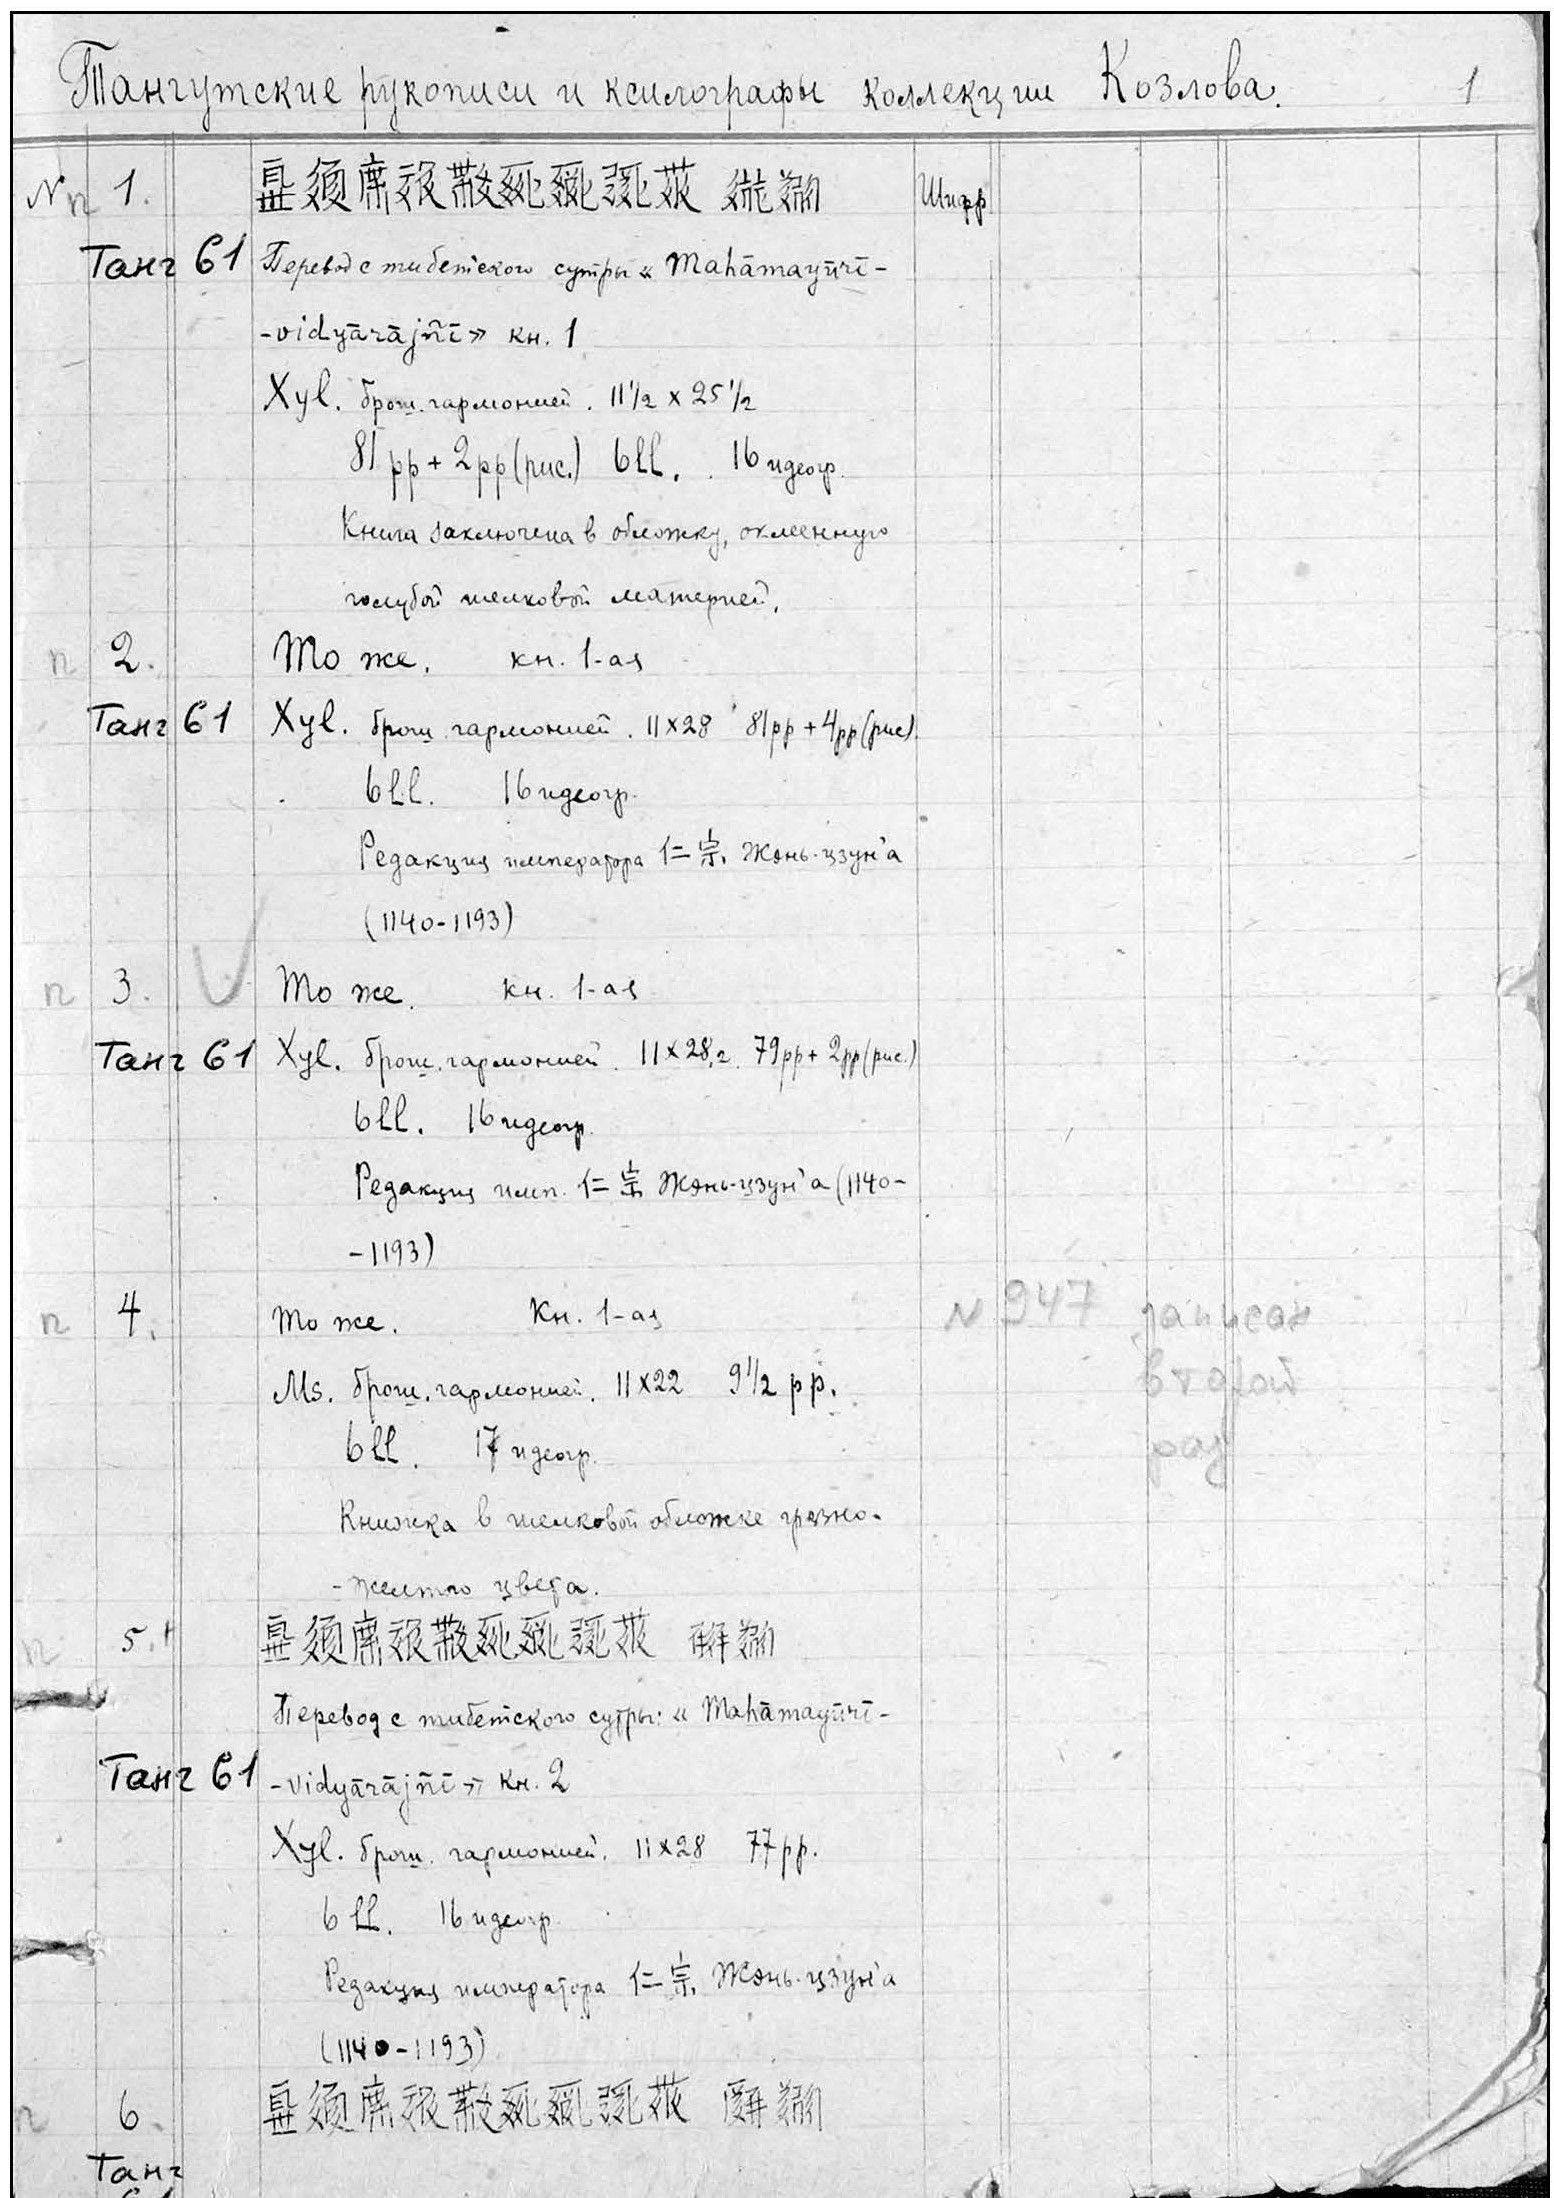 Тангутские рукописи и ксилографы коллекции Козлова. 1
№ п 1. Шифр
Танг 61 Перевод с тибетского сутры « Mahāmayūrī-
-vidyārājñī» кн. 1
Xyl. брош. гармонией. 11 1/2 x 25 1/2
81 pp + 2 pp (рис.) 6 ll. 16 идеогр.
Книга заключена в обложку, оклеенную
голубой шелковой материей.
п 2. То же. кн. 1-ая
Танг 61 Xyl. брош. гармонией. 11 x 28 81 pp + 4 pp (рис)
6 ll. 16 идеогр.
Редакция императора 仁宗 Жэнь-цзун'а
(1140-1193)
п 3. То же. кн. 1-ая
Танг 61 Xyl. брош. гармонией. 11 x 28,2. 79 pp + 2 pp (рис.)
6 ll. 16 идеогр.
Редакция имп. 仁宗 Жэнь-цзун'а (1140-
-1193)
п 4. То же. Кн. 1-ая N 947 записан
Ms. брош. гармонией. 11 x 22 9 1/2 pp. второй
6 ll. 17 идеогр. раз
Книжка в шелковой обложке грязно-
-желтого цвета.
п 5.
Перевод с тибетского сутры: « Mahāmayūrī-
Танг 61 -vidyārājñī» кн. 2
Xyl. брош. гармонией. 11 x 28 77 pp.
6 ll. 16 идеогр.
Редакция императора 仁宗 Жэнь-цзун'а
(1140-1193)
п 6.
Танг
61